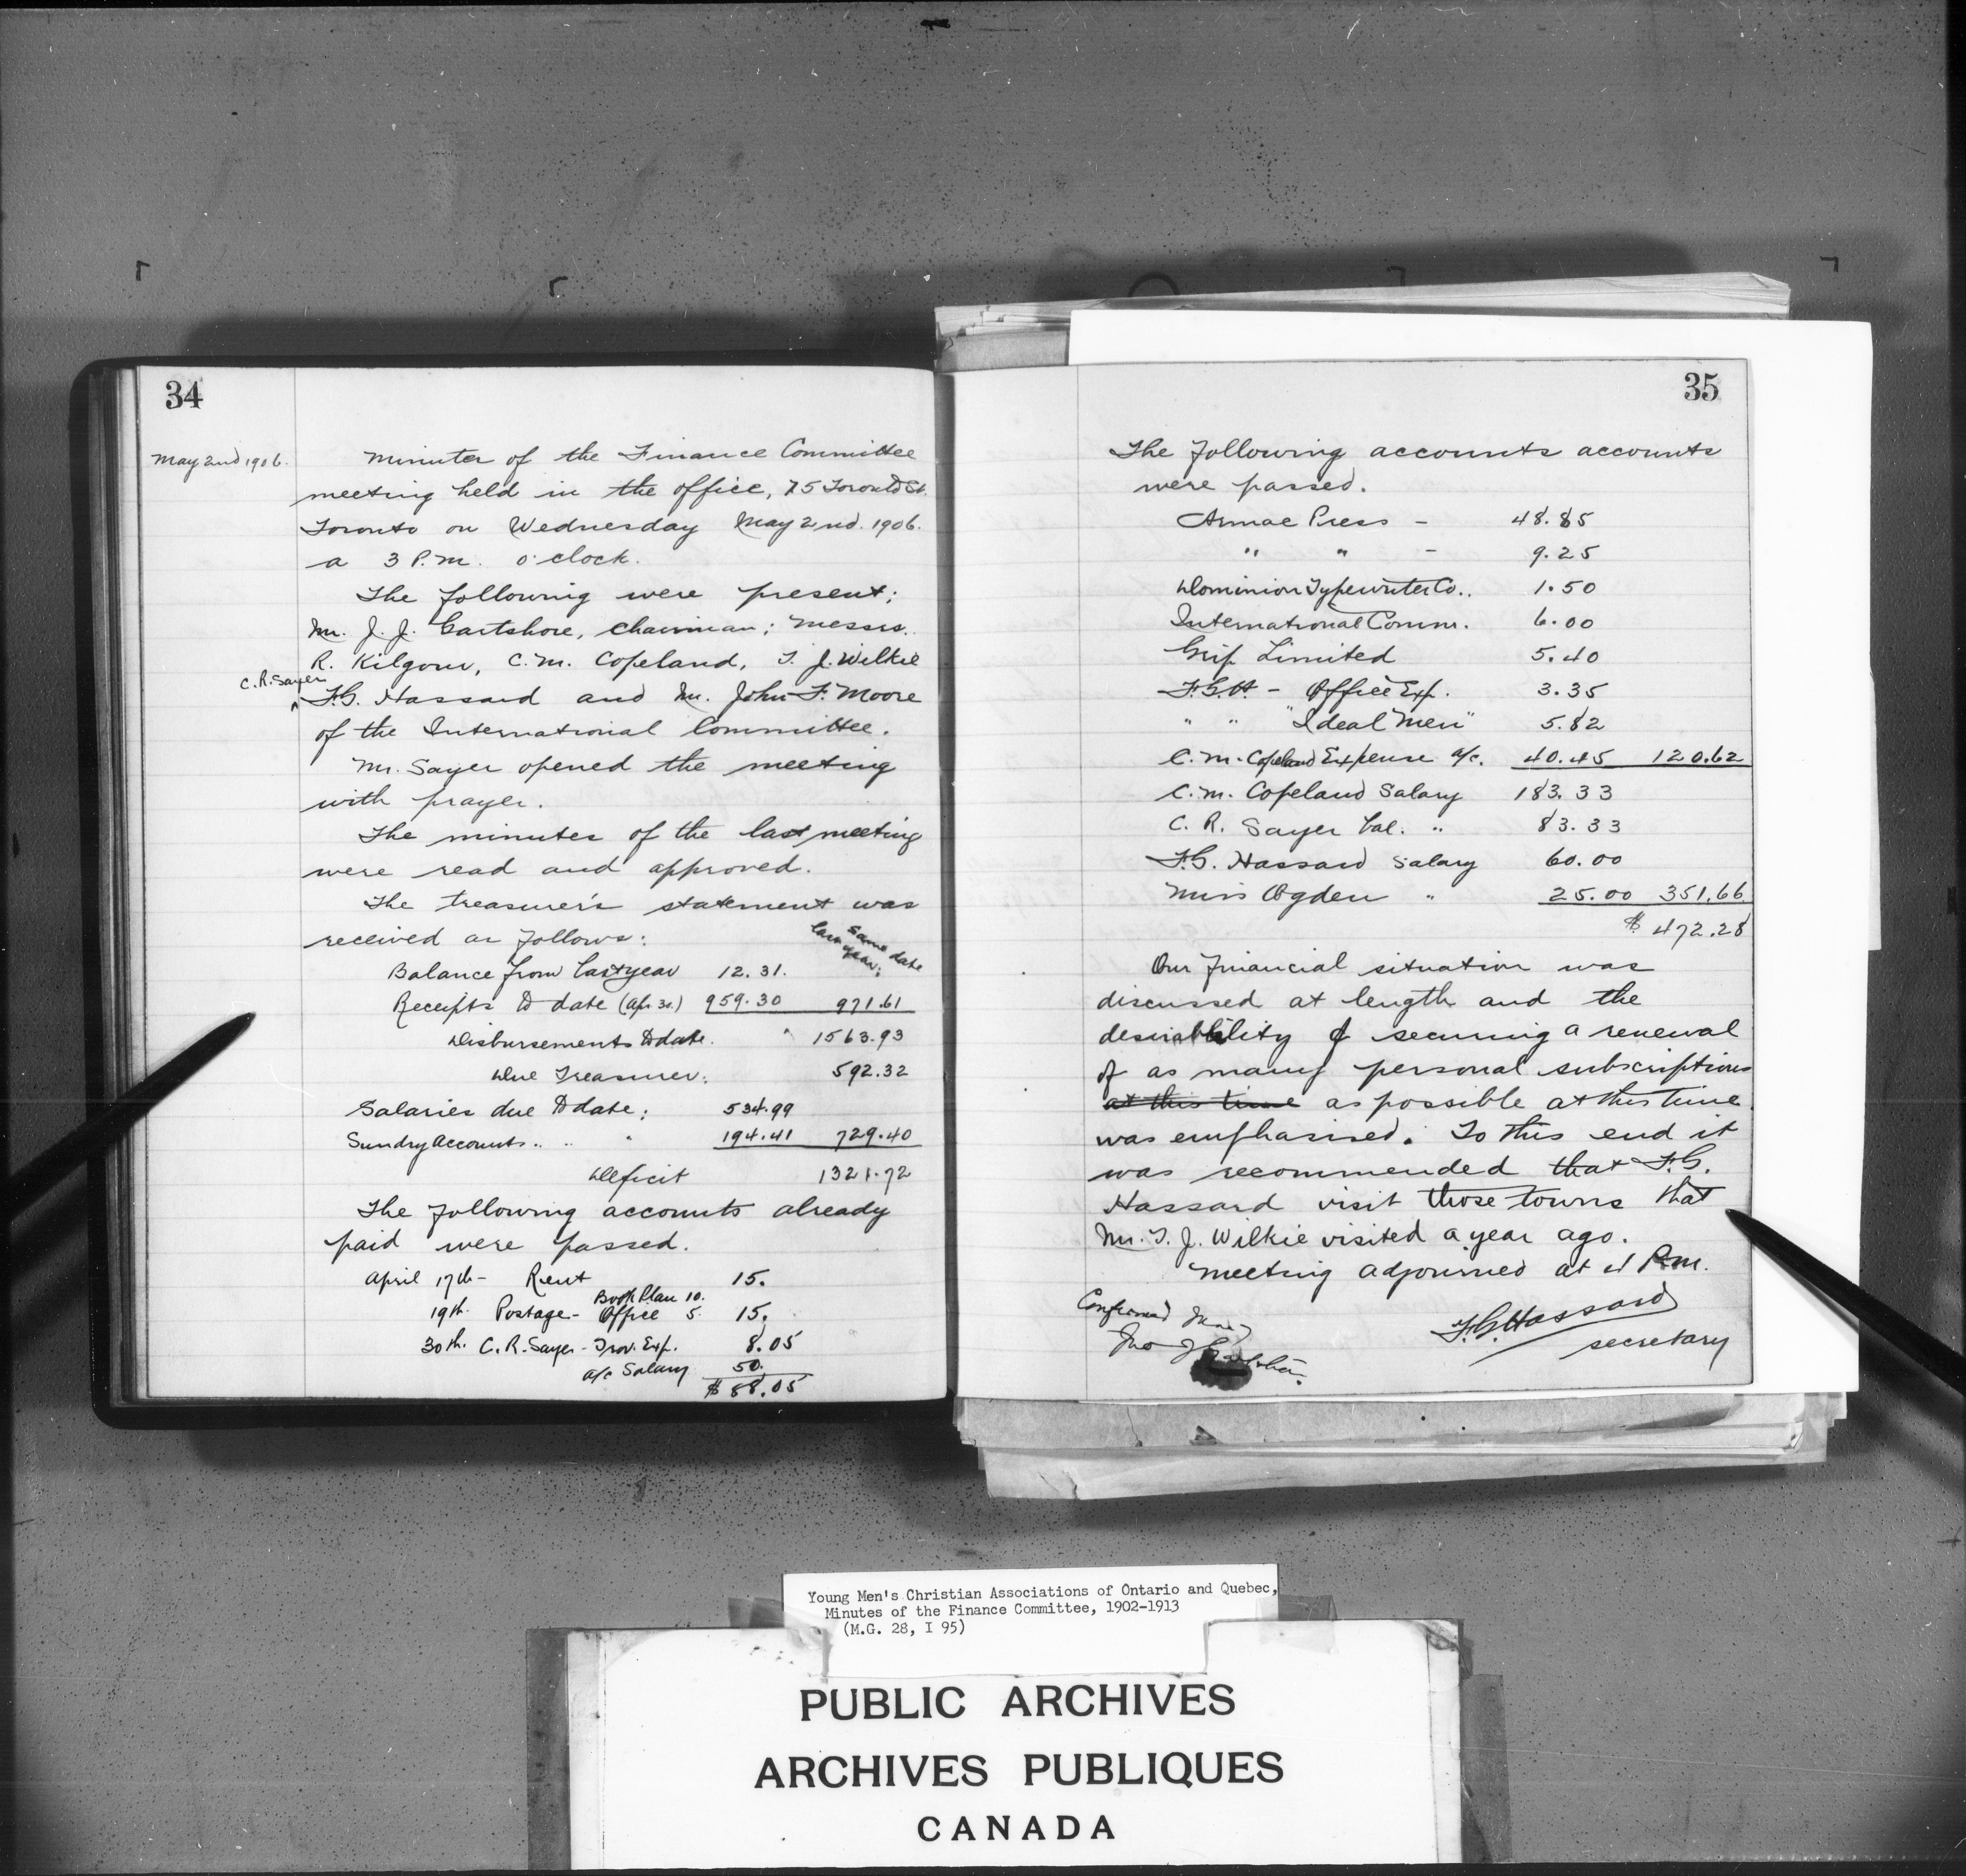 34
May 2nd 1906.
Minutes of the Finance Committee
meeting held in the office, 75 Toronto St.
Toronto on Wednesday May 2nd. 1906.
a 3 P.M. o'clock.
The following were present;
Mr. J. J. Gartshore, Chairman; Messrs.
R. Kilgour, C. M. Copeland, T. J. Wilkie
C. R. Sayer
F. G. Hassard and Mr. John F. Moore
of the International Committee.
Mr. Sayer opened the meeting
with prayer.
The minutes of the last meeting
were read and approved.
The treasurer's statement was
received as follows:
Same date
last year;
Balance from last year 12.31.
Receipts to date (Apr 30.) 959.30 971.61
Disbursements to date. " 1563.93
Due Treasurer: 592.32
Salaries due to date; 534.99
Sundry Accounts .. .. " 194.41 729.40
Deficit 1321.72
The following accounts already
paid were passed.
April 17th - Rent 15.
Book Plan 10.
19th. Postage - Office 5. 15.
30th. C. R. Sayer - Trav. Exp. 8.05
a/c Salary 50.
$ 88.05
35
The following accounts accounts
were passed.
Armac Press - 48.85
" " - 9.25
Dominion Typewriter Co.. 1.50
International Comm. 6.00
Grip Limited 5.40
F.G.H - Office Exp. 3.35
" " "Ideal Men" 5.82
C. M. Copeland Expense a/c. 40.45 120.62
C. M. Copeland Salary 183.33
C. R. Sayer Bal. " 83.33
F. G. Hassard Salary 60.00
Miss Ogden " 25.00 351.66
$ 472.28
Our financial situation was
discussed at length and the
desirability of securing a renewal
of as many personal subscriptions
at this time as possible at this time
was emphasised. To this end it
was recommended that F. G.
Hassard visit those towns that
Mr. T. J. Wilkie visited a year ago.
Meeting adjourned at 4 P.m.
Confirmed
Jno J Gartshore
F. G. Hassard
secretary
Young Men's Christian Associations of Ontario and Quebec,
Minutes of the Finance Committee, 1902-1913
(M.G. 28, I 95)
PUBLIC ARCHIVES
ARCHIVES PUBLIQUES
CANADA